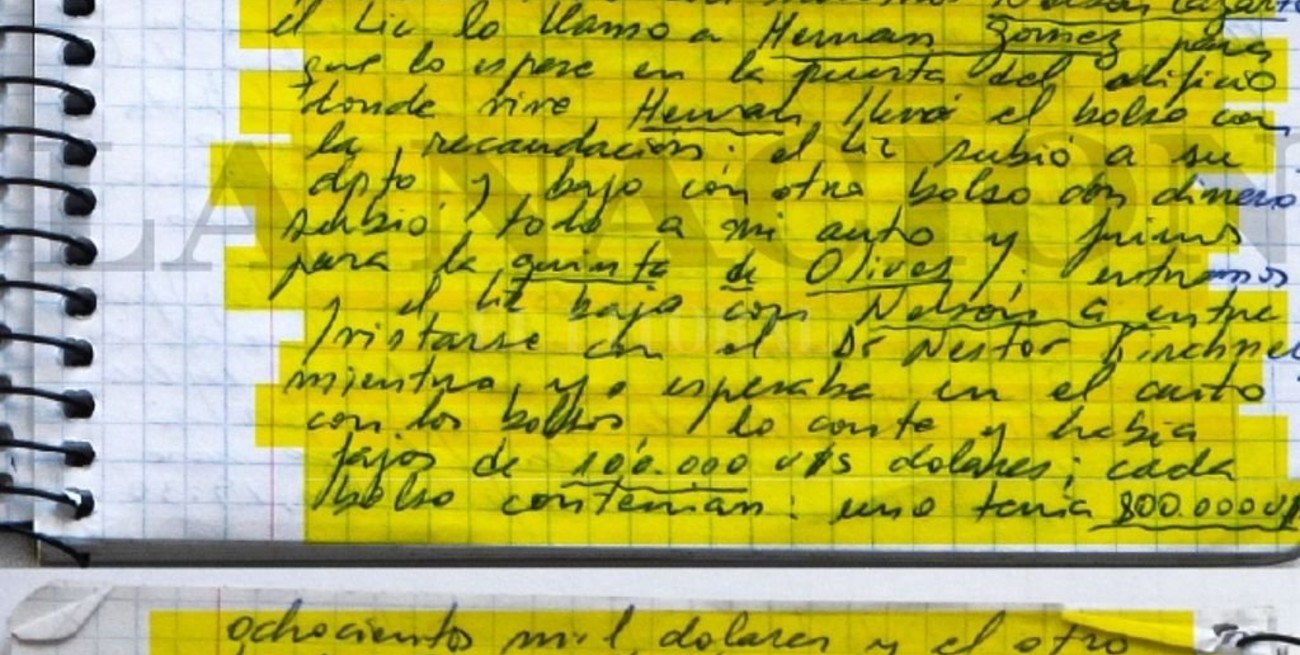 Nelson Lazarte
el Lic lo llamo a Hernan Gomez para
que lo espere en la puerta del edificio
donde vive Hernan, llevó el bolso con
la recaudacion; el Lic subió a su
dpto y bajo con otro bolso con dinero
subió todo a mi auto y fuimos
para la quinta de Olivos; entramos
y el Lic bajo con Nelson a entre
vistarse con el Dr Nestor Kirchner
mientras yo esperaba en el auto
con los bolsos lo conte y habia
fajos de 100.000 u$s dolares; cada
bolso contenian: uno tenia 800.000 u$
ochocientos mil dolares y el otro
LA NACION